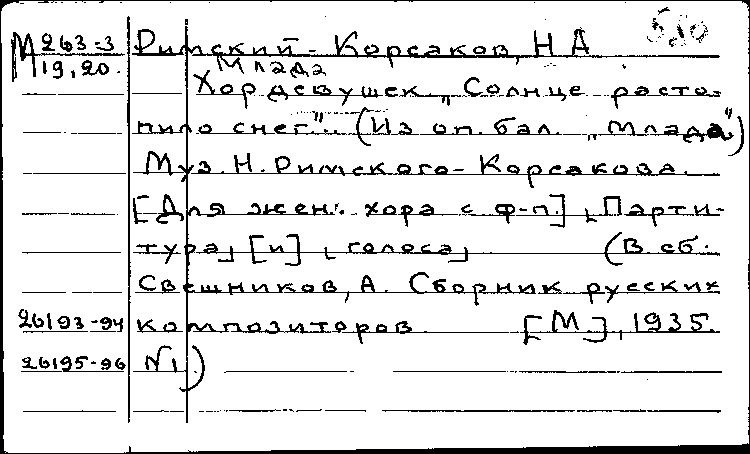 М 263-3 Римский-Корсаков, Н А 530
19,20. Млада
Хор девушек „Солнце расто-
пило снег". (Из оп. бал. „Млада")
Муз. Н. Римского-Корсакова.
[Для жен. хора с ф-п.] [Парти-
тура] [и] [голоса] (В сб.
Свешников, А. Сборник русских
26193-94 композиторов [М], 1935.
26195-96 №1)